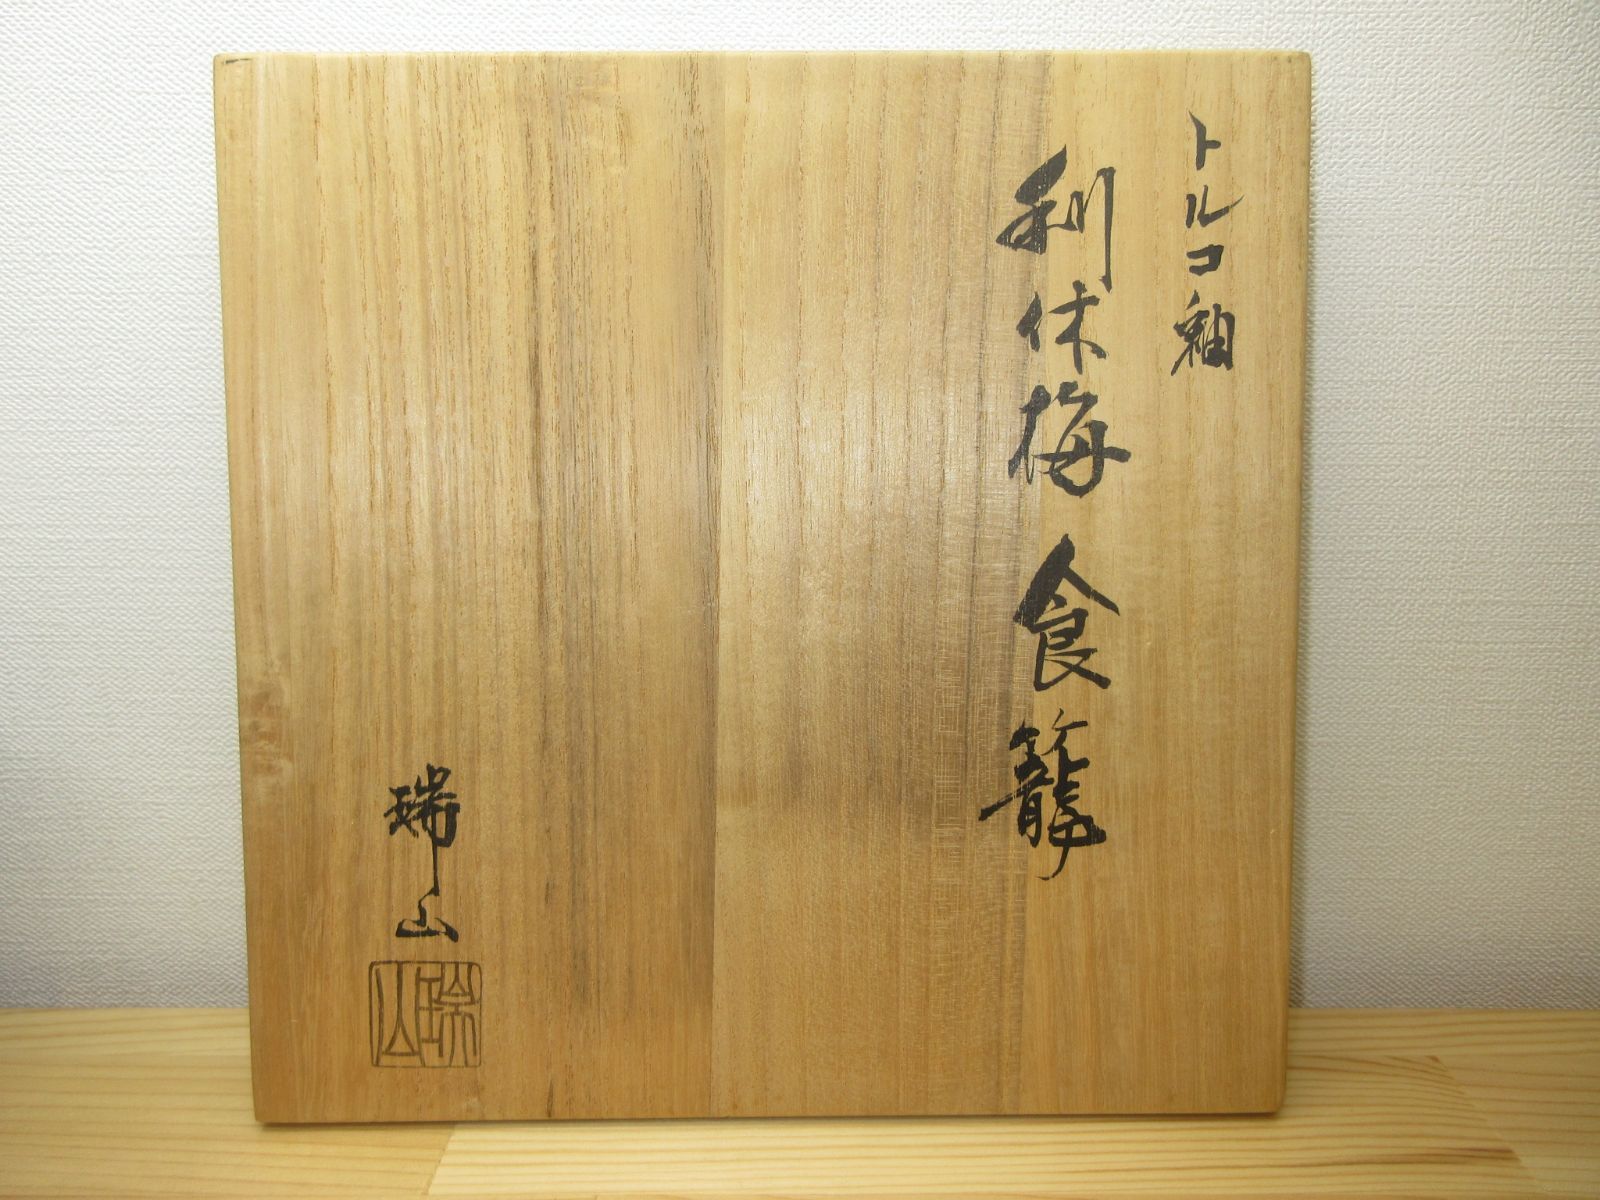 トルコ釉
利休梅 食籠
瑞山
瑞山